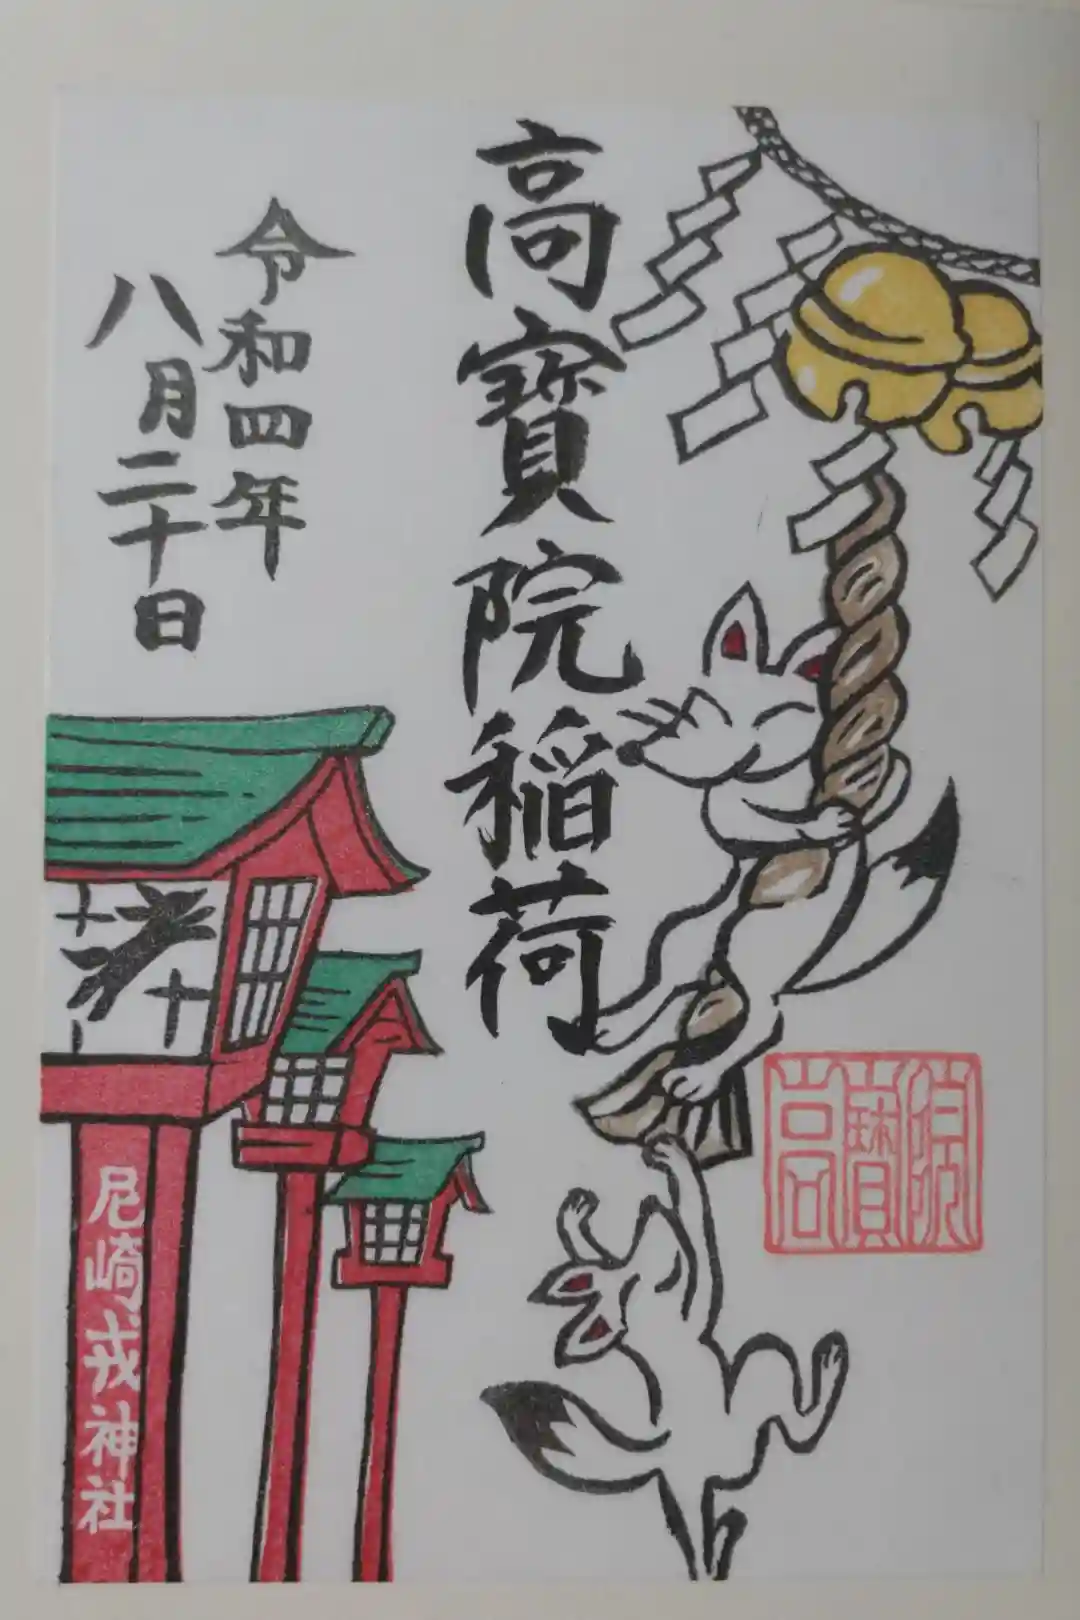 高寶院稲荷
令和四年
八月二十日
高寶院
尼崎戎神社